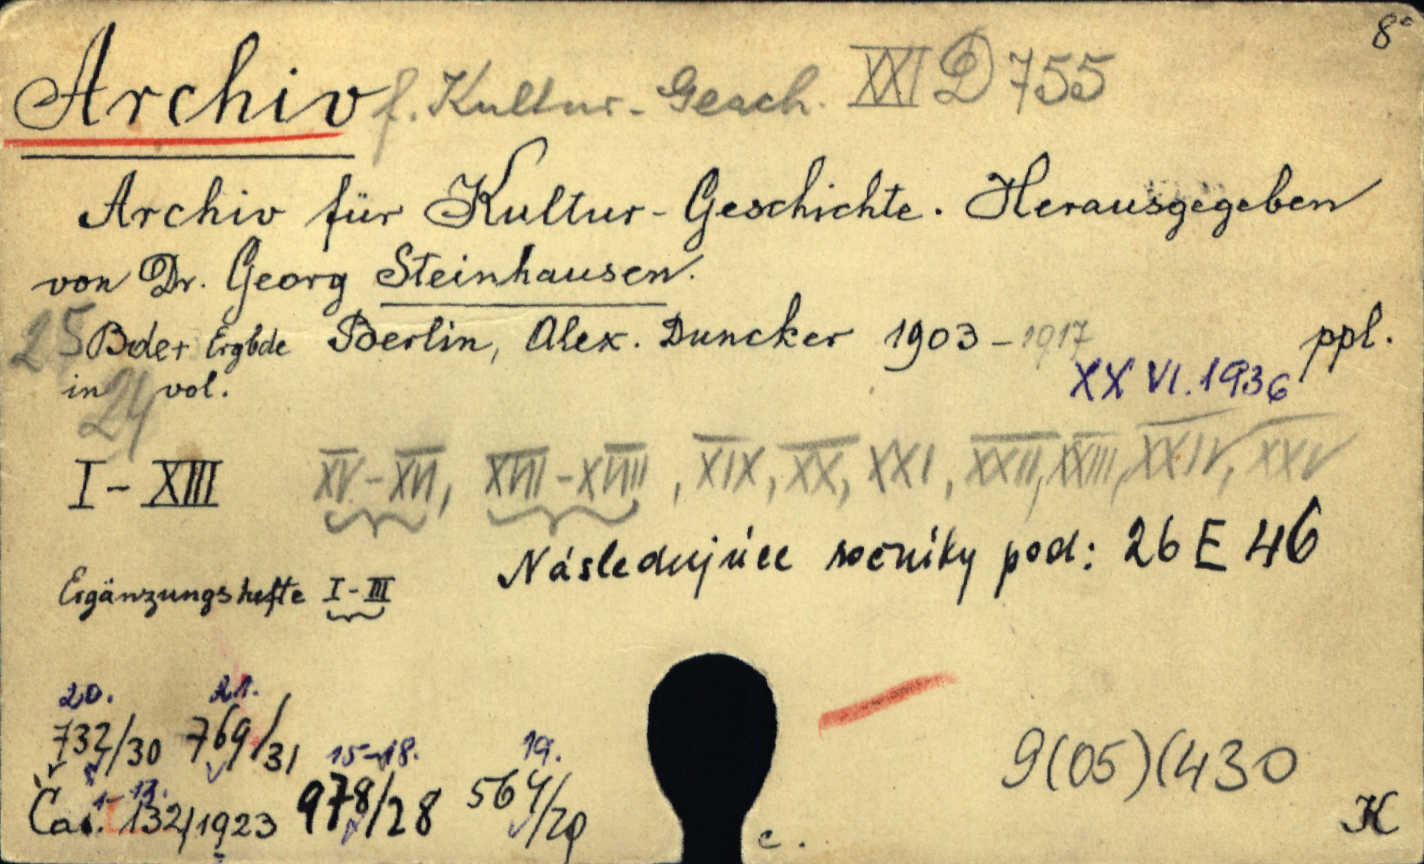 8°
Archiv f. Kultur-Gesch. XXI D 755
Archiv für Kultur-Geschichte. Herausgegeben
von Dr. Georg Steinhausen.
25 Bde + Ergbde Berlin, Alex. Duncker 1903-1917 ppl.
in 24 vol. XXVI. 1936
I-XIII XV-XVI, XVII-XVIII, XIX, XX, XXI, XXII, XXIII, XXIV, XXV
Následujúce ročníky pod: 26 E 46
Ergänzungshefte I-III
20. 21.
732/30 769/31 15-18. 19.
1-13.
Čas. 132/1923 978/28 564/29 c.
9(05)(430
K